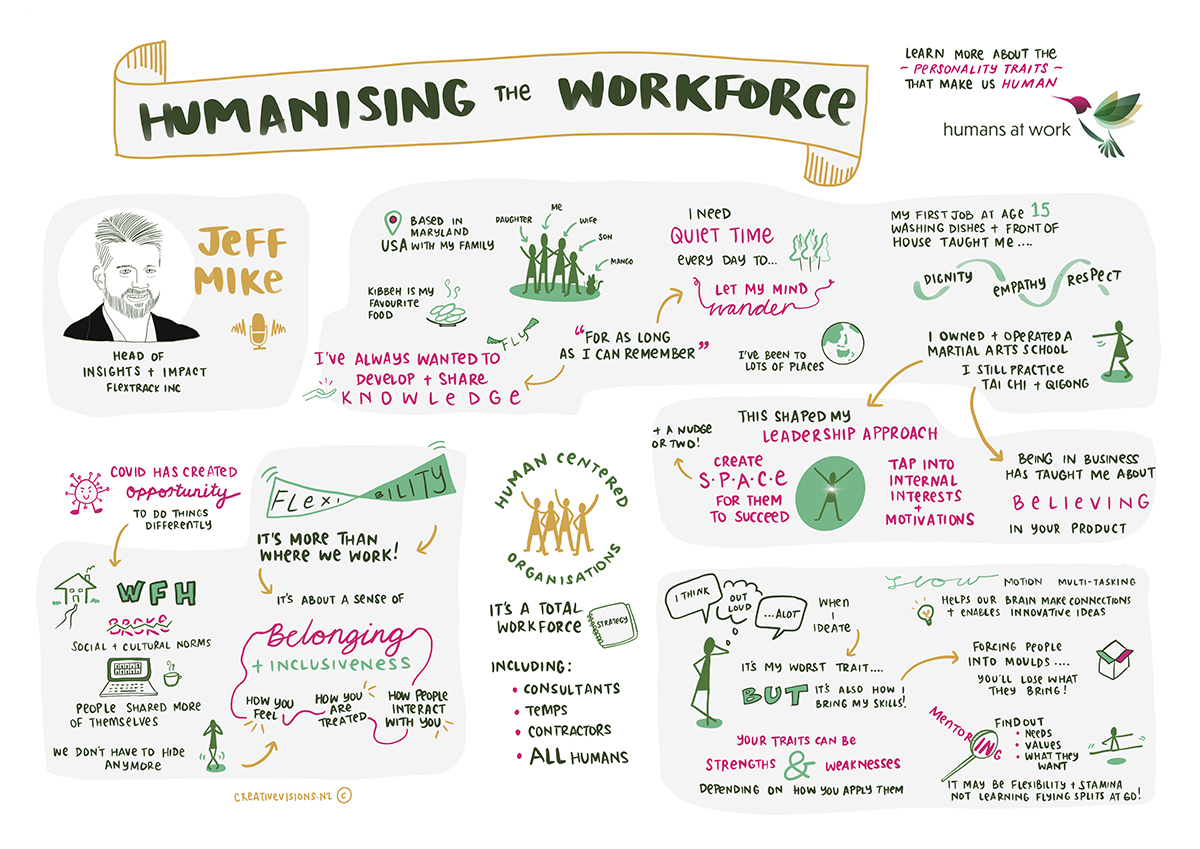 HUMANISING THE WORKFORCE
LEARN MORE ABOUT THE
- PERSONALITY TRAITS -
THAT MAKE US HUMAN
humans at work
JEFF
MIKE
HEAD OF
INSIGHTS + IMPACT
FLEXTRACK INC
BASED IN
MARYLAND
USA WITH MY FAMILY
DAUGHTER
ME
WIFE
SON
MANGO
KIBBEH IS MY
FAVOURITE
FOOD
FLY
I'VE ALWAYS WANTED TO
DEVELOP + SHARE
KNOWLEDGE
"FOR AS LONG
AS I CAN REMEMBER"
I NEED
QUIET TIME
EVERY DAY TO...
LET MY MIND
wander
I'VE BEEN TO
LOTS OF PLACES
MY FIRST JOB AT AGE 15
WASHING DISHES + FRONT OF
HOUSE TAUGHT ME ....
DIGNITY
EMPATHY
RESPECT
I OWNED + OPERATED A
MARTIAL ARTS SCHOOL
I STILL PRACTICE
TAI CHI + QIGONG
THIS SHAPED MY
LEADERSHIP APPROACH
+ A NUDGE
OR TWO!
CREATE
S·P·A·C·E
FOR THEM
TO SUCCEED
TAP INTO
INTERNAL
INTERESTS
+
MOTIVATIONS
BEING IN BUSINESS
HAS TAUGHT ME ABOUT
BELIEVING
IN YOUR PRODUCT
COVID HAS CREATED
opportunity
TO DO THINGS
DIFFERENTLY
WFH
BROKE
SOCIAL + CULTURAL NORMS
PEOPLE SHARED MORE
OF THEMSELVES
WE DON'T HAVE TO HIDE
ANYMORE
FLEXIBILITY
IT'S MORE THAN
WHERE WE WORK!
IT'S ABOUT A SENSE OF
Belonging
+ INCLUSIVENESS
HOW YOU
FEEL
HOW YOU
ARE
TREATED
HOW PEOPLE
INTERACT
WITH YOU
CREATIVEVISIONS.NZ ©
HUMAN CENTERED
ORGANISATIONS
IT'S A TOTAL
WORKFORCE
STRATEGY
INCLUDING:
• CONSULTANTS
• TEMPS
• CONTRACTORS
• ALL HUMANS
I THINK
OUT
LOUD
...ALOT
WHEN
I
IDEATE
IT'S MY WORST TRAIT....
BUT IT'S ALSO HOW I
BRING MY SKILLS!
YOUR TRAITS CAN BE
STRENGTHS & WEAKNESSES
DEPENDING ON HOW YOU APPLY THEM
slow MOTION MULTI-TASKING
HELPS OUR BRAIN MAKE CONNECTIONS
+ ENABLES INNOVATIVE IDEAS
FORCING PEOPLE
INTO MOULDS ....
YOU'LL LOSE WHAT
THEY BRING!
MENTORING
FIND OUT
• NEEDS
• VALUES
• WHAT THEY
WANT
IT MAY BE FLEXIBILITY + STAMINA
NOT LEARNING FLYING SPLITS AT 60!